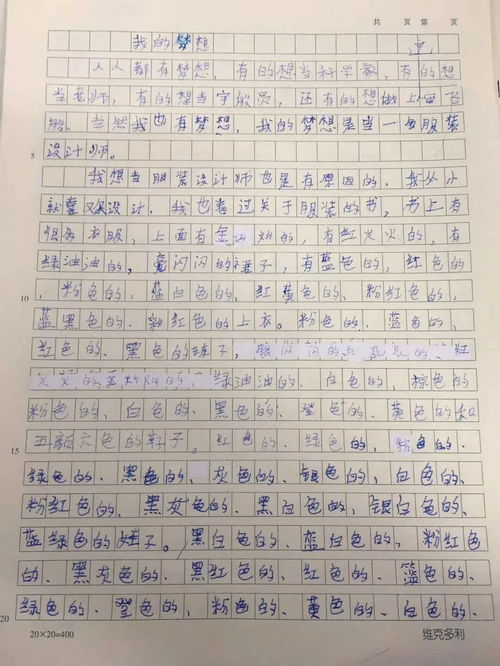 共 页 第 页
我的梦想
人人都有梦想，有的想当科学家，有的想
当老师，有的想当宇航员，还有的想做上宙飞
船。当然我也有梦想，我的梦想是当一名服装
5 设计师。
我想当服装设计师也是有原因的，我从小
就喜欢设计，我也看过关于服装的书，书上有
很多衣服，上面有金灿灿的，有红火火的，有
绿油油的，亮闪闪的裙子，有蓝色的、红色的
10 、粉色的、蓝白色的、红黄色的、粉红色的、
蓝黑色的、彩红色的上衣。粉色的、蓝色的、
红色的、黑色的裤子，银闪闪的、亮亮的、红
火火的、金灿灿的、绿油油的、白色的、棕色的
粉色的、白色的、黑色的、登色的、黄色的和
15 五颜六色的鞋子。红色的、绿色的、粉色的、
绿色的、黑色的、灰色的、银色的、白色的、
粉红色的、黑灰色的、黑白色的、银白色的、
蓝绿色的娃子。黑白色的、蓝白色的、粉红色
的、黑灰色的、黑红色的、红色的、篮色的、
20 绿色的、登色的、粉色的、黄色的、白色的、
20×20=400 维克多利